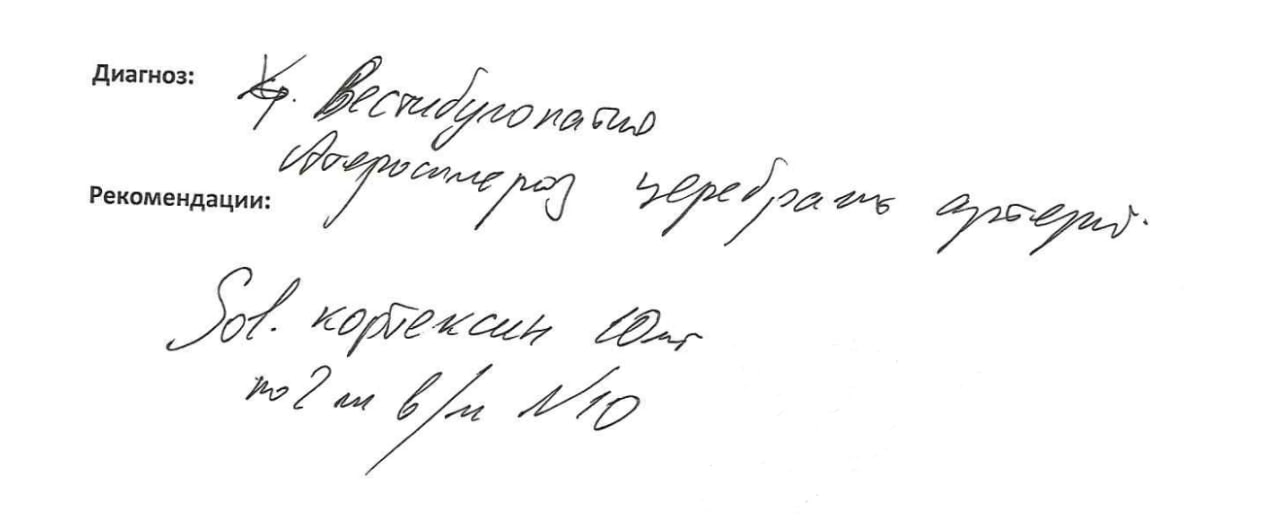 Диагноз:
Хр. Вестибулопатия
Атеросклероз церебраль артерий.
Рекомендации:
Sol. кортексин 10мг
по 2 мл в/м N10